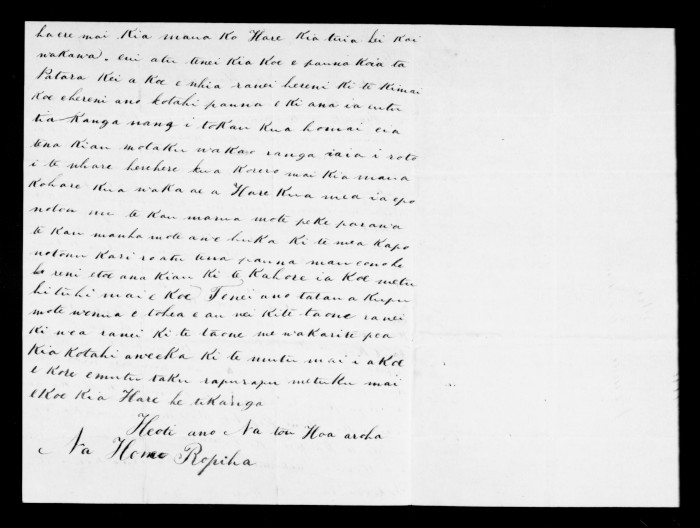 haere mai Kia mana Ko Hare Kia tuia hei Kai
wakawa. eui atu tenei Kia Koe e pauna Koia ta
Patara Kei a Koe e nhia ranei hereni Ki te Kimai
Koe ehereni ano kotahi pauna e Ki ana ia
tia Kanga nana i tokau Kua homai eia
tena Kiau motaku wakao ranga iaia i roto
i te whare herehere Kua Korero mai Kia mana
Kohare Kua waka ae a Hare Kua mea ia epo
notou nu te Kau mauna mote peke parawa
te Kau manha mote huka Ki te mea Kapo
notonu Kari roatu tena pauna mau eono he
reni etoe ana Kiau Ki te Kahore ia Koe metu
hituhi mai e Koe Tenei ano taraua Kupu
mote wenua e tohea e au nei Kite taone ranei
Ki wea ranei Ki te taone me wakarite pea
Kia Kotahi aweeKa Ki te mutu mai i a Koe
e Kore emutu taku rapurapu metuku mai
e Koe Kia Hare he tikanga
Heoti ano Na tou Hoa aroha
Na Ropiha